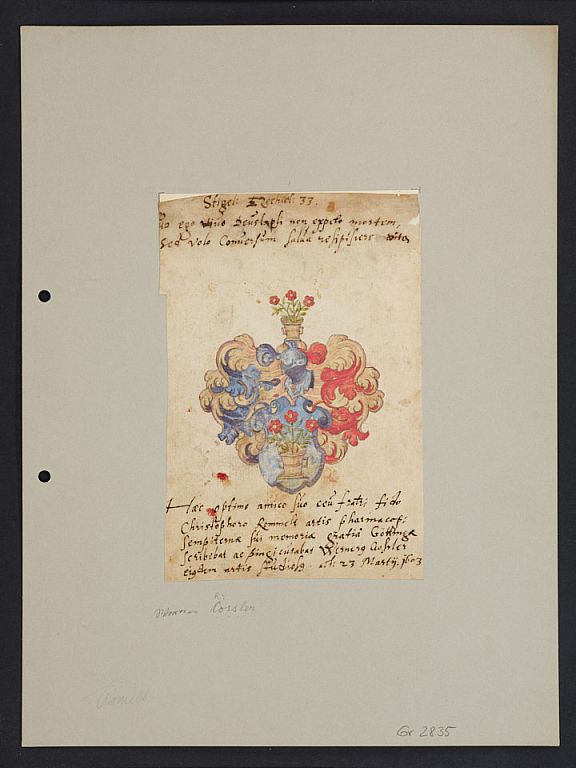 Stigel: Ezechiel: 33.
ego vivo Deus lapsi non expeto mortem,
Sed volo Conversum salva resipiscere vita
Haec optimo amico suo ceu fratri fido
Christophoro Remmelt artis pharmacopi
sempiternae sui memoriae gratia Gottingae
scribebat ac pingi curabat Wernerg
eigdem artis studiosg. 23 Martij. 1603
Kossler
Gr 2835